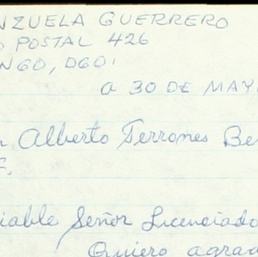 NZUELA GUERRERO
POSTAL 426
NGO, DGO.
a 30 DE MAY
Alberto Terrones Be
F.
iable Señor Licenciado
Quiero agrad